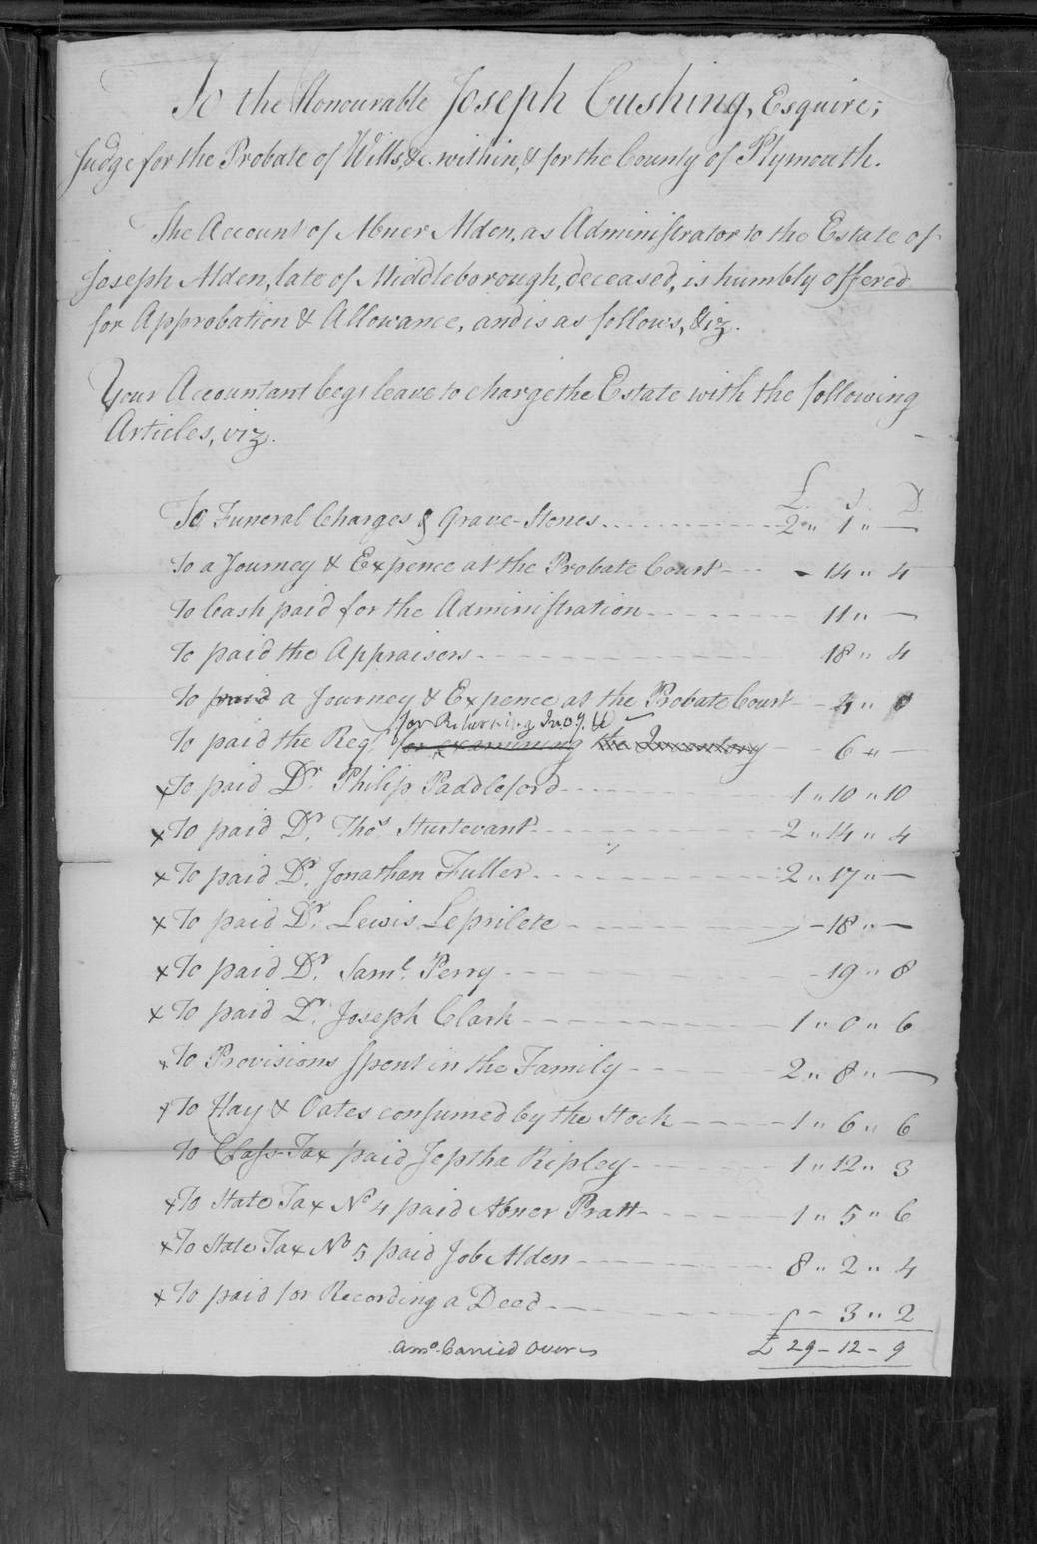 To the Honourable Joseph Cushing, Esquire;
Judge for the Probate of Wills, &c. within, & for the County of Plymouth.
The Account of Abner Alden, as Administrator to the Estate of
Joseph Alden, late of Middleborough, deceased, is humbly offered
for Approbation & Allowance, and is as follows, Viz.
Your Accountant begs leave to charge the Estate with the following
Articles, viz.
£. s. D
To Funeral Charges & Grave-Stones 2 " 1 " —
To a Journey & Expence at the Probate Court - 14 " 4
To Cash paid for the Administration 11 " —
To paid the Appraisers 18 " 4
To paid a Journey & Expence at the Probate Court - 4 "
for Returning
To paid the Regr. for examining the Inventory 6 " —
x To paid Dr. Philip Paddleford 1 " 10 " 10
x To paid Dr. Thos. Sturtevant 2 " 14 " 4
x To paid Dr. Jonathan Fuller 2 " 17 " —
x To paid Dr. Lewis Leprilete - 18 " —
x To paid Dr. Saml. Perry - 19 " 8
x To paid Dr. Joseph Clark 1 " 0 " 6
x To Provisions spent in the Family 2 " 8 " —
x To Hay & Oates consumed by the Stock 1 " 6 " 6
To Class-Tax paid Jeptha Ripley 1 " 12 " 3
x To State Tax No 4 paid Abner Pratt 1 " 5 " 6
x To State Tax No 5 paid Job Alden 8 " 2 " 4
x To paid for Recording a Deed - 3 " 2
Amo. Carried Over £ 29 - 12 - 9